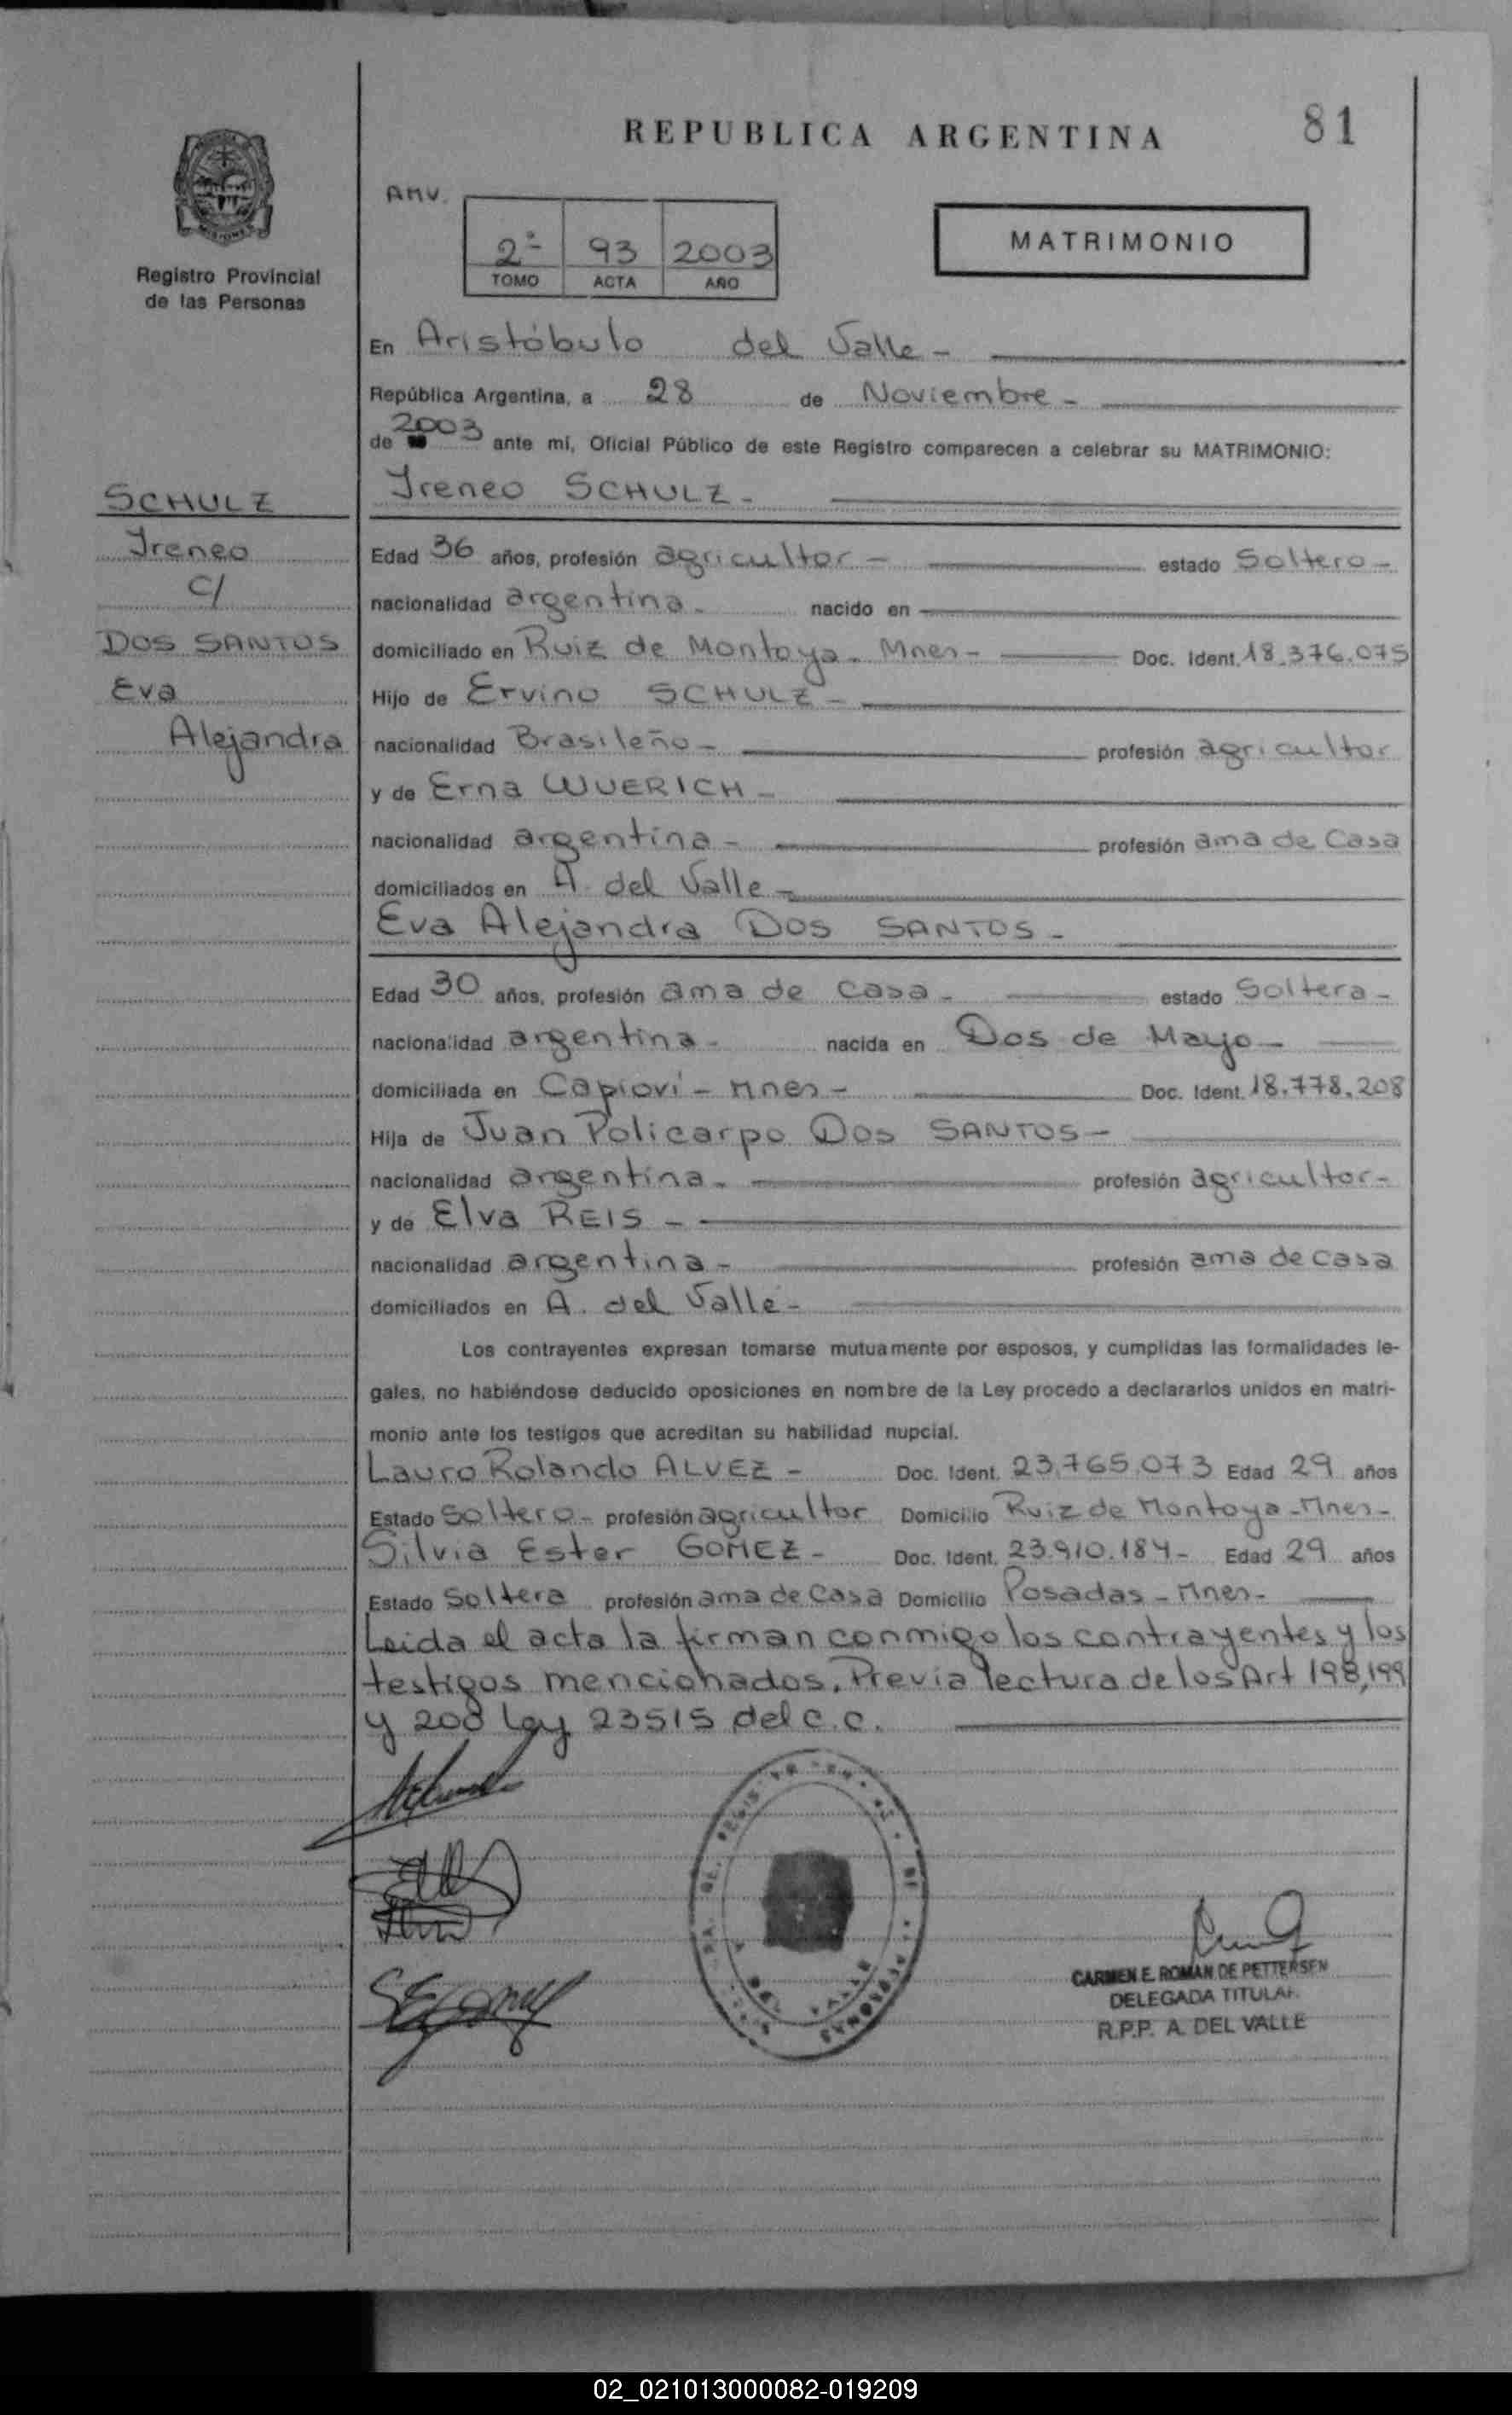 REPUBLICA ARGENTINA
81
MISIONES
Registro Provincial
de las Personas
ANV.
2ª 93 2003
TOMO ACTA AÑO
MATRIMONIO
En Aristóbulo del Valle -
República Argentina, a 28 de Noviembre -
de 2003 ante mí, Oficial Público de este Registro comparecen a celebrar su MATRIMONIO:
Ireneo SCHULZ -
SCHULZ
Ireneo
C/
DOS SANTOS
Eva
Alejandra
Edad 36 años, profesión agricultor - estado Soltero -
nacionalidad argentina - nacido en
domiciliado en Ruiz de Montoya - Mnes - Doc. Ident. 18.376.075
Hijo de Ervino SCHULZ -
nacionalidad Brasileño - profesión agricultor
y de Erna WUERICH -
nacionalidad argentina - profesión ama de Casa
domiciliados en A. del Valle -
Eva Alejandra DOS SANTOS -
Edad 30 años, profesión ama de casa - estado Soltera -
nacionalidad argentina - nacida en Dos de Mayo -
domiciliada en Capioví - Mnes - Doc. Ident. 18.778.208
Hija de Juan Policarpo Dos SANTOS -
nacionalidad argentina - profesión agricultor -
y de Elva REIS -
nacionalidad argentina - profesión ama de casa
domiciliados en A. del Valle -
Los contrayentes expresan tomarse mutuamente por esposos, y cumplidas las formalidades le-
gales, no habiéndose deducido oposiciones en nombre de la Ley procedo a declararlos unidos en matri-
monio ante los testigos que acreditan su habilidad nupcial.
Lauro Rolando ALVEZ - Doc. Ident. 23.765.073 Edad 29 años
Estado Soltero - profesión agricultor Domicilio Ruiz de Montoya - Mnes -
Silvia Ester GOMEZ - Doc. Ident. 23.910.184 - Edad 29 años
Estado Soltera profesión ama de Casa Domicilio Posadas - Mnes -
Leida el acta la firman conmigo los contrayentes y los
testigos mencionados. Previa lectura de los Art 198, 199
y 200 Ley 23515 del C.C.
CARMEN E. ROMAN DE PETTERSEN
DELEGADA TITULAR
R.P.P. A. DEL VALLE
02_021013000082-019209